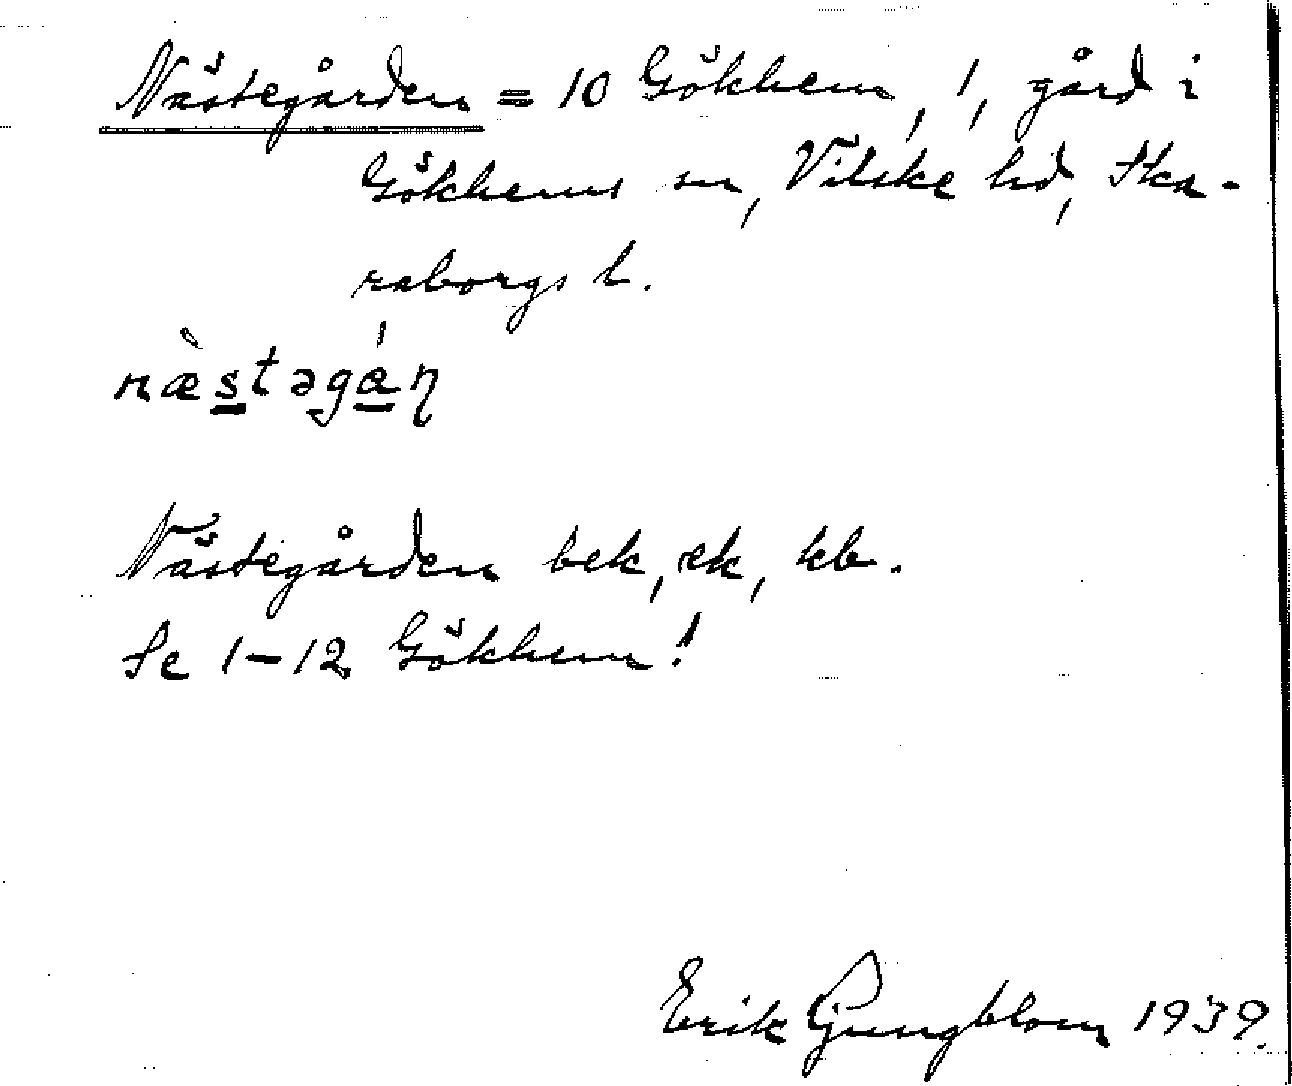 Nästegården = 10 Gökhem, 1, gård i
Gökhems sn, Vilske hd, Ska-
raborgs l.
næ̀stəgán
Nästegården bek, ek, kb.
Se 1-12 Gökhem!
Erik Ljungblom 1939.